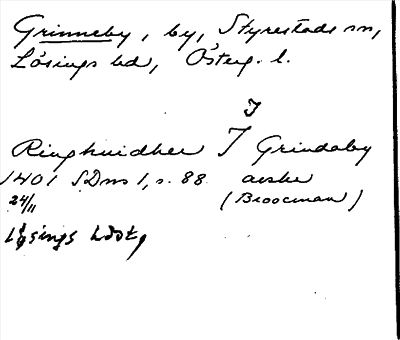 Grinneby, by, Styrestads sn,
Lösings hd, Österg. l.
I
Ringhuidher I Grindaby
1401 SDns 1, s. 88. aeske
24/11 (Broocman)
Lösings hd Östg